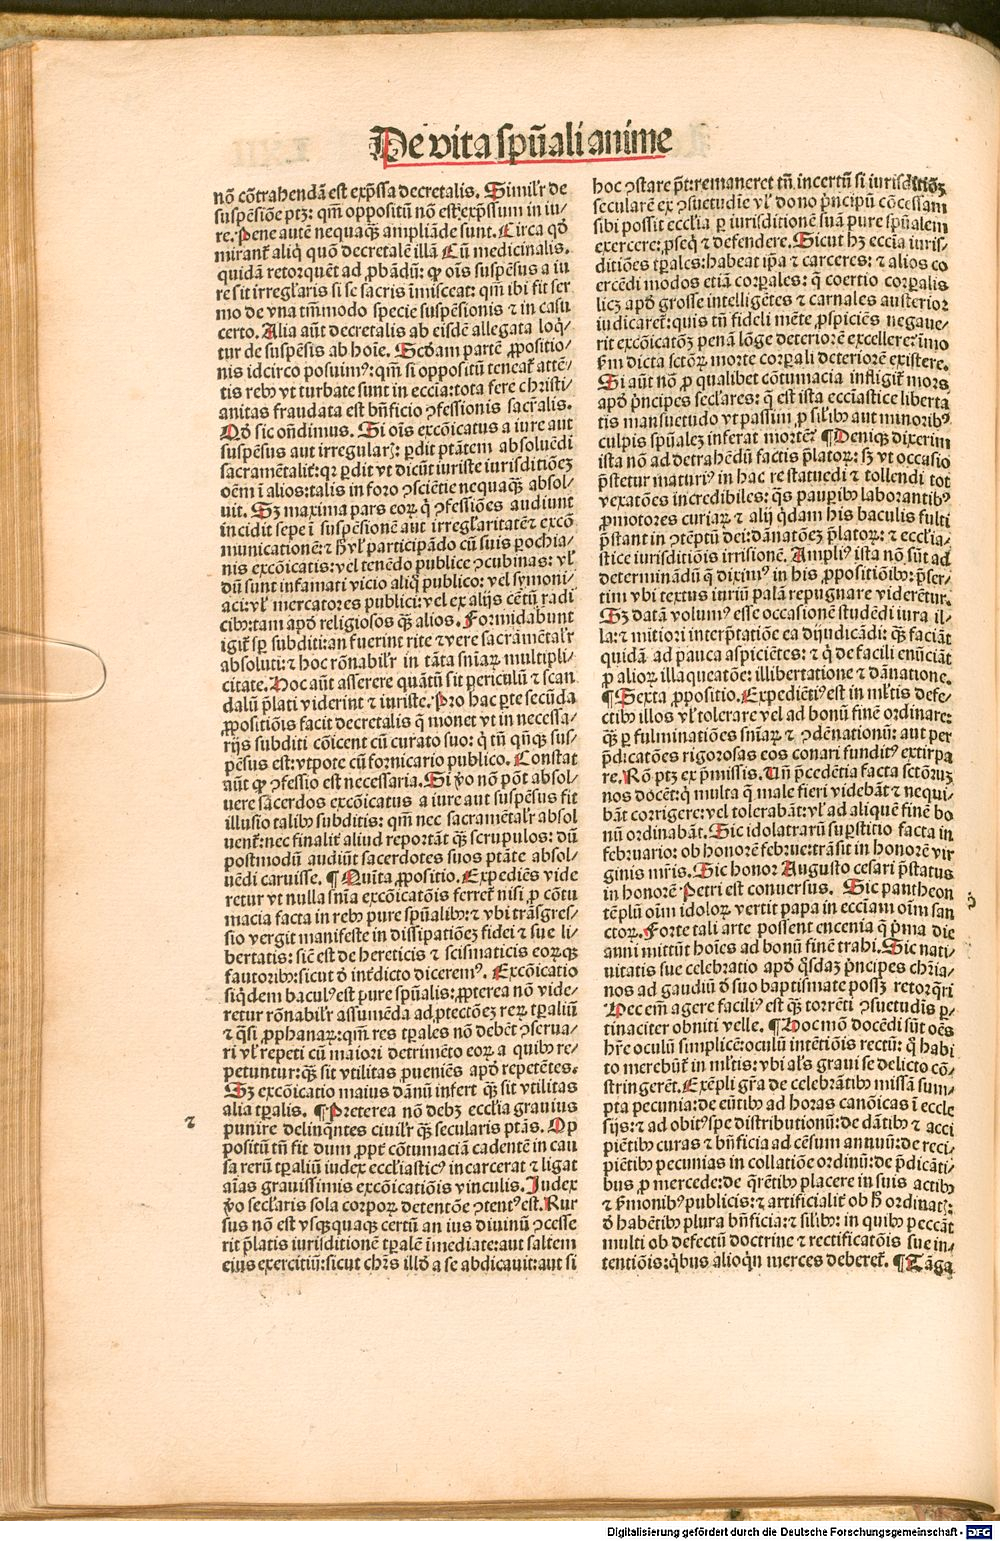 De vita spũali anime
nõ cõtrahendã est exp̃ssa decretalis. Similr̃ de
suspẽsiõe ptꝫ: qm̃ oppositũ nõ est exp̃ssum in iu⸗
re. Pene autẽ nequaqꝫ ampliãde sunt. Circa qđ
mirant̃ aliq̃ quõ decretalẽ illã Cũ medicinalis.
quidã retorquẽt ad ꝓbãdũ: ꝙ oĩs suspẽsus a iu
re sit irregl̃aris si se sacris ĩmisceat: qm̃ ibi fit ser
mo de vna tm̃modo specie suspẽsionis ⁊ in casu
certo. Alia aũt decretalis ab eisdẽ allegata loq̃⸗
tur de suspẽsis ab hoĩe. Scđam partẽ ꝓpositio⸗
nis idcirco posuimꝰ: qm̃ si oppositũ teneat̃ attẽ⸗
tis rebꝰ vt turbate sunt in eccĩa: tota fere christi⸗
anitas fraudata est bñficio ꝯfessionis sacr̃alis.
Qđ sic oñdimus. Si oĩs excõicatus a iure aut
suspẽsus aut irregularꝭ: ꝑdit ptãtem absoluẽdi
sacramẽtalit̃: qꝛ ꝑdit vt dicũt iuriste iurisditiõeꝫ
oẽm ĩ alios: talis in foro ꝯsciẽtie nequaqꝫ absol⸗
uit. Sꝫ maxima pars eoꝝ q̃ ꝯfessiões audiunt
incidit sepe ĩ suspẽsionẽ aut irregl̃aritatẽ ⁊ excõ
municationẽ: ⁊ ħ vl̃ participãdo cũ suis ꝑochia⸗
nis excõicatis: vel tenẽdo publice ꝯcubinas: vl̃
dũ sunt infamati vicio aliq̃ publico: vel symoni⸗
aci: vl̃ mercatores publici: vel ex alijs cẽtũ radi
cibꝰ: tam apđ religiosos qꝫ alios. Formidabunt
igit̃ sꝑ subditi: an fuerint rite ⁊ vere sacramẽtalr̃
absoluti: ⁊ hoc rõnabilr̃ in tãta sñiaꝝ multipli⸗
citate. Hoc aũt asserere quãtũ sit periculũ ⁊ scan
dalũ p̃lati viderint ⁊ iuriste. Pro hac ꝑte secũda
ꝓpositiõis facit decretalis q̃ monet vt in necessa⸗
rijs subditi cõicent cũ curato suo: q̃ tñ qñqꝫ sus⸗
pẽsus est: vtpote cũ fornicario publico. Constat
aũt ꝙ ꝯfessio est necessaria. Si ṽo nõ põt absol⸗
uere sacerdos excõicatus a iure aut suspẽsus fit
illusio talibꝰ subditis: qm̃ nec sacramẽtalr̃ absol
uent̃: nec finalit̃ aliud reportãt qꝫ scrupulos: dũ
postmodũ audiũt sacerdotes suos ptãte absol⸗
uẽdi caruisse. ¶ Quĩta ꝓpositio. Expediẽs vide
retur vt nulla sñia excõicatõis ferret̃ nisi ꝓ cõtu
macia facta in rebꝰ pure spũalibꝰ: ⁊ vbi trãsgres⸗
sio vergit manifeste in dissipatiõeꝫ fidei ⁊ sue li⸗
bertatis: sicẽ est de hereticis ⁊ scismaticis eoꝝqꝫ
fautoribꝰ: sicut đ int̃dicto diceremꝰ. Excõicatio
siq̃dem baculꝰ est pure spũalis: ꝓpterea nõ vide⸗
retur rõnabilr̃ assumẽda ad ꝓtectõeꝫ reꝝ tꝑaliũ
⁊ q̃si ꝓphanaꝝ: qm̃ res tꝑales nõ debẽt ꝯserua⸗
ri vl̃ repeti cũ maiori detrimẽto eoꝝ a quibꝰ re⸗
petuntur: qꝫ sit vtilitas ꝓueniẽs apđ repetẽtes.
Sꝫ excõicatio maius dãnũ infert qꝫ sit vtilitas
alia tꝑalis. ¶ Preterea nõ debꝫ eccl̃ia grauius
punire delinq̃ntes civilr̃ qꝫ secularis ptãs. Op
positũ tñ fit dum ꝓpt̃ cõtumaciã cadentẽ in cau
sa rerũ tꝑaliũ iudex eccl̃iasticꝰ incarcerat ⁊ ligat
aĩas grauissimis excõicatiõis vinculis. Iudex
ṽo secl̃aris sola corpoꝝ detentõe ꝯtentꝰ est. Rur
sus nõ est vsqꝫquaqꝫ certũ an ius diuinũ ꝯcesse
rit p̃latis iurisditionẽ tꝑalẽ ĩmediate: aut saltem
eius exercitiũ: sicut chr̃s illđ a se abdicauit: aut si
hoc ꝯstare p̃t: remaneret tñ incertũ si iurisditiõꝫ
secularẽ ex ꝯsuetudĩe vl̃ dono p̃ncipũ cõcessam
sibi possit eccl̃ia ꝑ iurisditionẽ suã pure spũalem
exercere: ꝓseq̃ ⁊ defendere. Sicut hꝫ eccĩa iuris⸗
ditiões tꝑales: habeat ip̃a ⁊ carceres: ⁊ alios co
ercẽdi modos etiã corꝑales: q̃ coertio corꝑalis
licꝫ apđ grosse intelligẽtes ⁊ carnales austerior
iudicaret̃: quis tñ fideli mẽte ꝓspiciẽs negaue⸗
rit excõicatõꝫ penã lõge deteriorẽ excellere: imo
ẜm dicta sctõꝝ morte corꝑali deteriorẽ existere.
Si aũt nõ ꝓ qualibet cõtumacia infligit̃ mors
apđ p̃ncipes secl̃ares: q̃ est ista eccl̃astice liberta
tis mansuetudo vt passim ꝓ sil̃ibꝰ aut minoribꝰ
culpis spũaleꝫ inferat mortẽ? ¶ Deniqꝫ dixerim
ista nõ ad detrahẽdũ factis p̃latoꝝ: sꝫ vt occasio
p̃stetur maturiꝰ in hac re statuẽdi ⁊ tollendi tot
vexatões incredibiles: q̃s pauꝑibꝰ laborantibꝰ
ꝓmotores curiaꝝ ⁊ alij q̃dam his baculis fulti
p̃stant in ꝯtẽptũ dei: dãnatõeꝫ p̃latoꝝ: ⁊ eccl̃ia⸗
stice iurisditiõis irrisionẽ. Ampliꝰ ista nõ sũt ad
determinãdũ q̃ diximꝰ in his ꝓpositiõibꝰ: p̃ser⸗
tim vbi textus iuriũ palã repugnare viderẽtur.
Sꝫ datã volumꝰ esse occasionẽ studẽdi iura il⸗
la: ⁊ mitiori interp̃tatiõe ea dijudicãdi: qꝫ faciãt
quidã ad pauca aspiciẽtes: ⁊ q̃ de facili enũciãt
ꝓ alioꝝ illaqueatõe: illibertatione ⁊ dãnatione.
¶ Sexta ꝓpositio. Expediẽtiꝰ est in ml̃tis defe⸗
ctibꝰ illos vl̃ tolerare vel ad bonũ finẽ ordinare:
qꝫ ꝑ fulminatiões sñiaꝝ ⁊ ꝯdẽnationũ: aut per
p̃dicatões rigorosas eos conari funditꝰ extirpa
re. Rõ ptꝫ ex p̃missis. Uñ p̃cedẽtia facta sctõruꝫ
nos docẽt: q̃ multa q̃ male fieri videbãt ⁊ nequi⸗
bãt corrigere: vel tolerabãt: vl̃ ad aliquẽ finẽ bo
nũ ordinabãt. Sic idolatrarũ suꝑstitio facta in
februario: ob honorẽ februe: trãsit in honorẽ vir
ginis mr̃is. Sic honor Augusto cesari p̃status
in honorẽ Petri est conuersus. Sic pantheon
tẽplũ oĩm idoloꝝ vertit papa in eccĩam oĩm san
ctoꝝ. Forte tali arte possent encenia q̃ p̃ma die
anni mittũt hoĩes ad bonũ finẽ trahi. Sic nati⸗
uitatis sue celebratio apđ q̃sdaꝫ p̃ncipes chr̃ia⸗
nos ad gaudiũ đ suo baptismate possꝫ retorq̃ri
Nec em̃ agere faciliꝰ est qꝫ torrẽti ꝯsuetudĩs ꝑ⸗
tinaciter obniti velle. ¶ Hoc mõ docẽdi sũt oẽs
hr̃e oculũ simplicẽ: oculũ intẽtiõis rectũ: q̃ habi
to merebũt̃ in ml̃tis: vbi al̃s graui se delicto cõ⸗
stringerẽt. Exẽpli gr̃a de celebrãtibꝰ missã sum⸗
pta pecunia: de eũtibꝰ ad horas canõicas ĩ eccle
sijs: ⁊ ad obitꝰ spe distributionũ: de dãtibꝰ ⁊ acci
piẽtibꝰ curas ⁊ bñficia ad cẽsum annuũ: de reci⸗
piẽtibꝰ pecunias in collatiõe ordinũ: de p̃dicãti⸗
bus ꝓ mercede: de q̃rẽtibꝰ placere in suis actibꝰ
⁊ ẜmonibꝰ publicis: ⁊ artificialit̃ ob ħ ordinatꝭ:
đ habẽtibꝰ plura bñficia: ⁊ sil̃ibꝰ: in quibꝰ peccãt
multi ob defectũ doctrine ⁊ rectificatõis sue in⸗
tentiõis: q̃bus alioq̃n merces deberet̃. ¶ Tãga
Digitalisierung gefördert durch die Deutsche Forschungsgemeinschaft - DFG